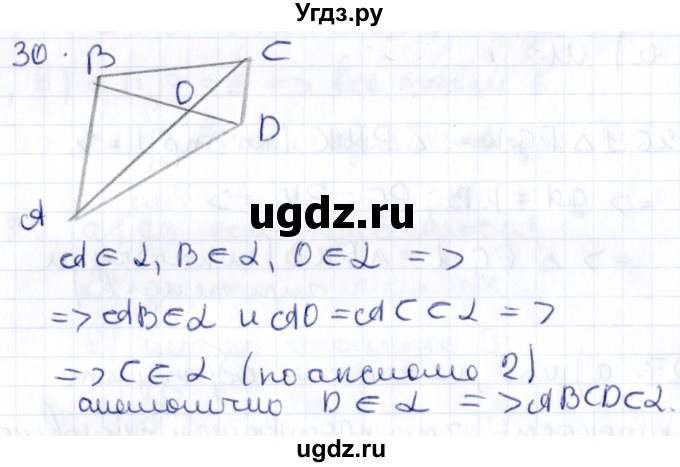 Угдз.ру
30.
B
C
O
D
A
ugdz.ru
A ∈ α, B ∈ α, O ∈ α =>
=> AB ∈ α и AO = AC ∈ α =>
=> C ∈ α (по аксиоме 2)
аналогично D ∈ α => ABCD ∈ α.
ugdz.ru